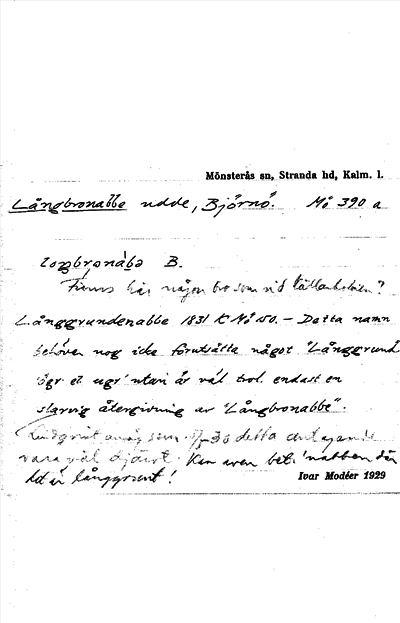 Mönsterås sn, Stranda hd, Kalm. l.
Långbronabbe udde, Björnö. Nå 390 a
B.
Finns här någon bro som vid
Långgrundenabbe 1831 K Nå 150. – Detta namn
behöver nog icke förutsätta något "Långgrund
ögr el ugr' utan är väl trol. endast en
slarvig återgivning av "Långbronabbe".
Lindqvist ansåg som detta antagande
vara väl djärvt. Kan även bet. 'nabben där
det är långgrunt!
Ivar Modéer 1929